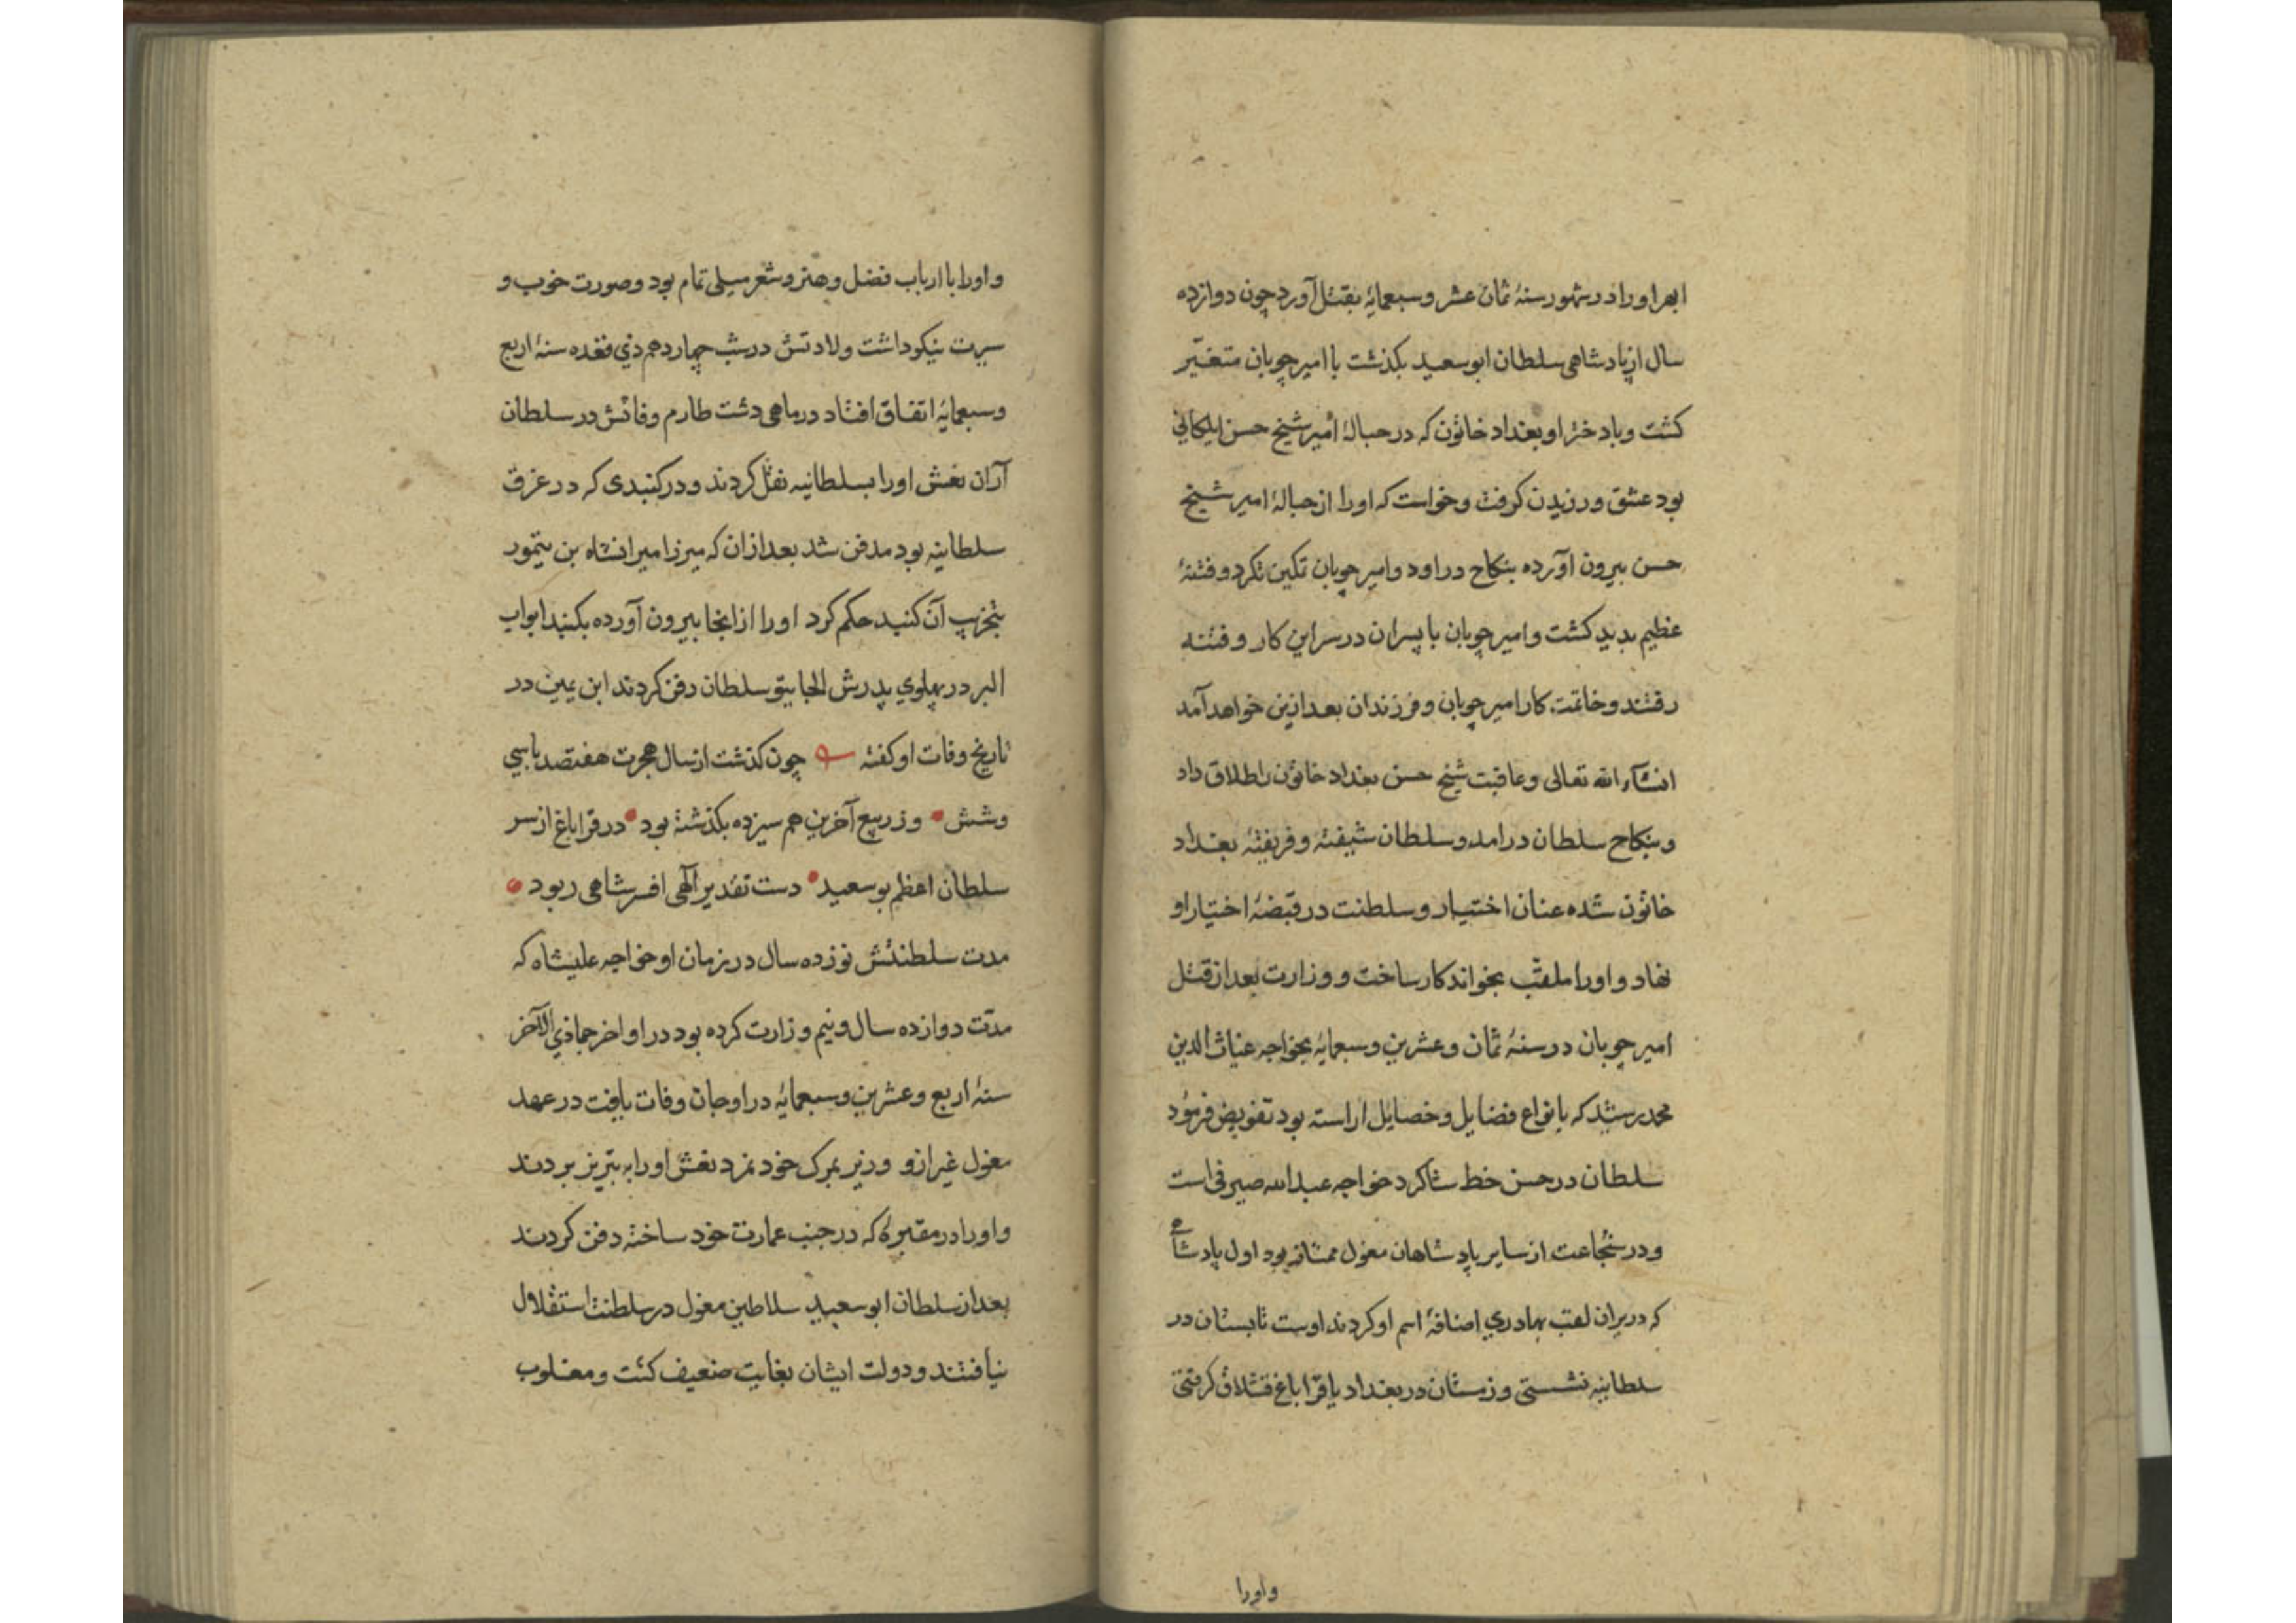 ابهر اورا در شهور سنهٔ ثمان عشر وسبعمایه بقتل آورد چون دوازده
سال از پادشاهی سلطان ابوسعید بکذشت با امیر چوپان متغیّر
کشت وبا دختر او بغداد خاتون که در حبالهٔ امیر شیخ حسن ایلکانی
بود عشق ورزیدن کرفت وخواست که اورا از حبالهٔ امیر شیخ
حسن بیرون آورده بنکاح دراود وامیر چوپان تمکین نکرد وفتنهٔ
عظیم پدید کشت وامیر چوپان با پسران در سر این کار وفتنه
رفتند وخاتمت کار امیر چوپان وفرزندان بعد ازین خواهد آمد
انشآء الله تعالی وعاقبت شیخ حسن بغداد خاتون را طلاق داد
وبنکاح سلطان درامد وسلطان شیفته وفریفتهٔ بغداد
خاتون شده عنان اختیار وسلطنت در قبضهٔ اختیار او
نهاد واورا ملقّب بخواندکار ساخت ووزارت بعد از قتل
امیر چوپان در سنهٔ ثمان وعشرین وسبعمایه بخواجه غیاث الدین
محمد رشید که بانواع فضایل وخصایل اراسته بود تفویض فرمود
سلطان در حسن خط شاکرد خواجه عبدالله صیرفی است
ودر شجاعت از سایر پادشاهان مغول ممتاز بود اول پادشاه
که در یران لقب بهادری اضافهٔ اسم او کردند اوست تابستان در
سلطانیه نشستی وزمستان در بغداد یا قرا باغ قشلاق کرفتی
واورا
واورا با ارباب فضل وهنر وشعر میلی تمام بود وصورت خوب و
سیرت نیکو داشت ولادتش در شب چهاردهم ذی قعده سنهٔ اربع
وسبعمایه اتفاق افتاد در ماهی دشت طارم وفاتش در سلطان
آران نعش اورا بسلطانیه نقل کردند ودر کنبدی که در غرف
سلطانیه بود مدفن شد بعد ازان که میرزا میرانشاه بن تیمور
بتخریب آن کنبد حکم کرد اورا از انجا بیرون آورده بکنبد ابواب
البر در پهلوی پدرش الجایتو سلطان دفن کردند ابن یمین در
تاریخ وفات او کفته چون کذشت از سال هجرت هفتصد با سی
وشش • وز ربیع آخرین هم سیزده بکذشته بود • در قراباغ از سر
سلطان اعظم بوسعید • دست تقدیر آلهی افسر شاهی ربود •
مدت سلطنتش نوزده سال در زمان او خواجه علیشاه که
مدّت دوازده سال ونیم وزارت کرده بود در اواخر جماذی الآخر
سنهٔ اربع وعشرین وسبعمایه در اوجان وفات یافت در عهد
مغول غیر ازو وزیر بمرک خود نمرد نعش اورا به تبریز بردند
واورا در مقبرهٔ که در جنب عمارت خود ساخته دفن کردند
بعد از سلطان ابو سعید سلاطین مغول در سلطنت استقلال
نیافتند ودولت ایشان بغایت ضعیف کشت ومغلوب